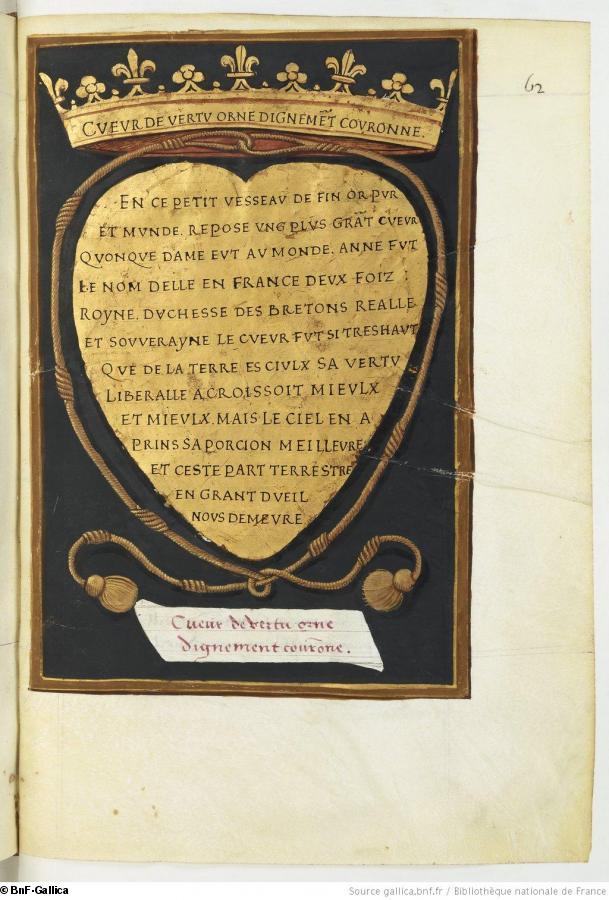 62
CVEVR DE VERTV ORNE DIGNEMẼT COVRONNE.
EN CE PETIT VESSEAV DE FIN OR PVR
ET MVNDE. REPOSE VNG PLVS GRÃT CVEVR
QVONQVE DAME EVT AV MONDE. ANNE FVT
LE NOM DELLE EN FRANCE DEVX FOIZ :
ROYNE. DVCHESSE DES BRETONS REALLE
ET SOVVERAYNE LE CVEVR FVT SI TRESHAVT
QVE DE LA TERRE ES CIVLX SA VERTV
LIBERALLE ACROISSOIT MIEVLX
ET MIEVLX. MAIS LE CIEL EN A
PRINS SA PORCION MEILLEVRE
ET CESTE PART TERRESTRE
EN GRANT DVEIL
NOVS DEMEVRE
Cueur de vertu orne
dignement courõne.
© BnF-Gallica
Source gallica.bnf.fr / Bibliothèque nationale de France